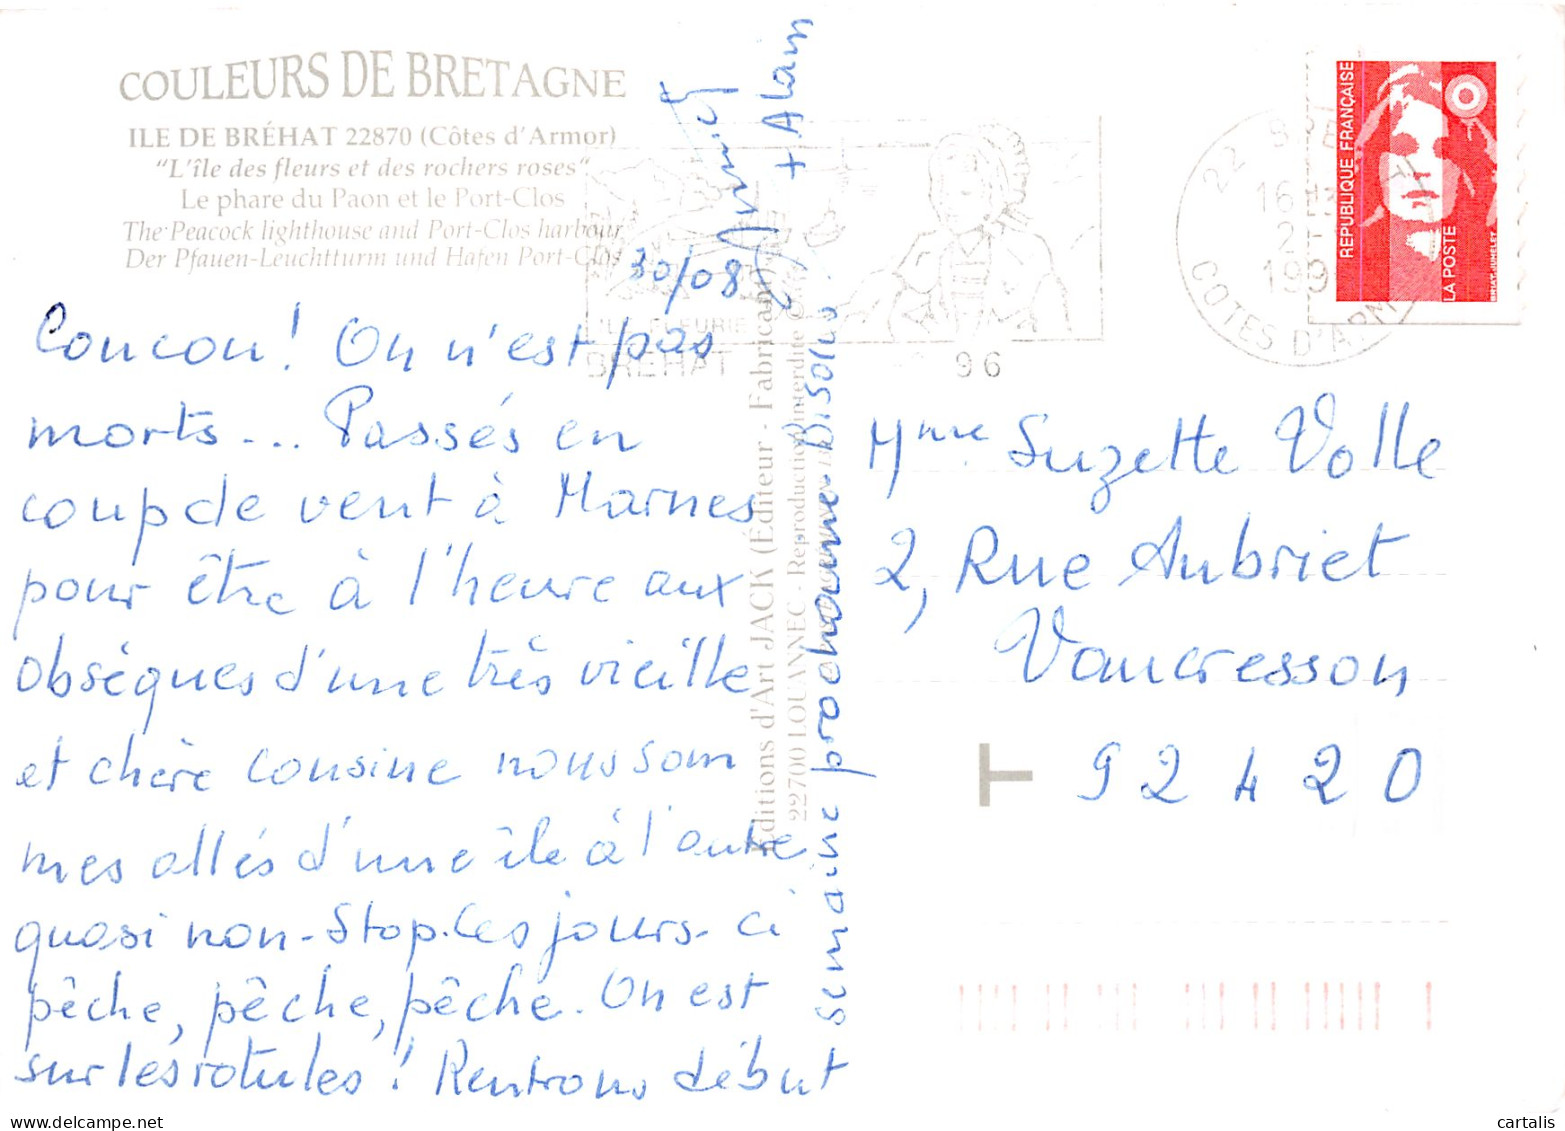 COULEURS DE BRETAGNE
ILE DE BRÉHAT 22870 (Côtes d'Armor)
"L'île des fleurs et des rochers roses"
Le phare du Paon et le Port-Clos
The Peacock lighthouse and Port-Clos harbour
Der Pfauen-Leuchtturm und Hafen Port-Clos
30/08
Coucou! On n'est pas
morts... Passés en
coup de vent à Marnes
pour être à l'heure aux
obsèques d'une très vieille
et chère cousine nous som
mes allés d'une île à l'autre
quasi non-stop. Ces jours-ci
pêche, pêche, pêche. On est
sur les rotules! Rentrons début
semaine prochaine. Bisous.
+ Alain
Editions d'Art JACK (Éditeur - Fabricant)
22700 LOUANNEC - Reproduction interdite
ILE FLEURIE
BREHAT
96
22
16H
2
199
COTES D'ARMOR
RÉPUBLIQUE FRANÇAISE
LA POSTE
BRIAT-JUMELET
Mme Suzette Volle
2, Rue Aubriet
Vaucresson
T 92420
cartalis